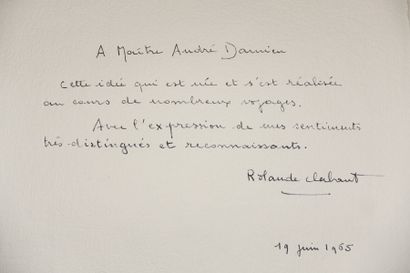 A Maître André Damien
Cette idée qui est née et s'est réalisée
au cours de nombreux voyages.
Avec l'expression de mes sentiments
très distingués et reconnaissants.
Rolande
19 juin 1965